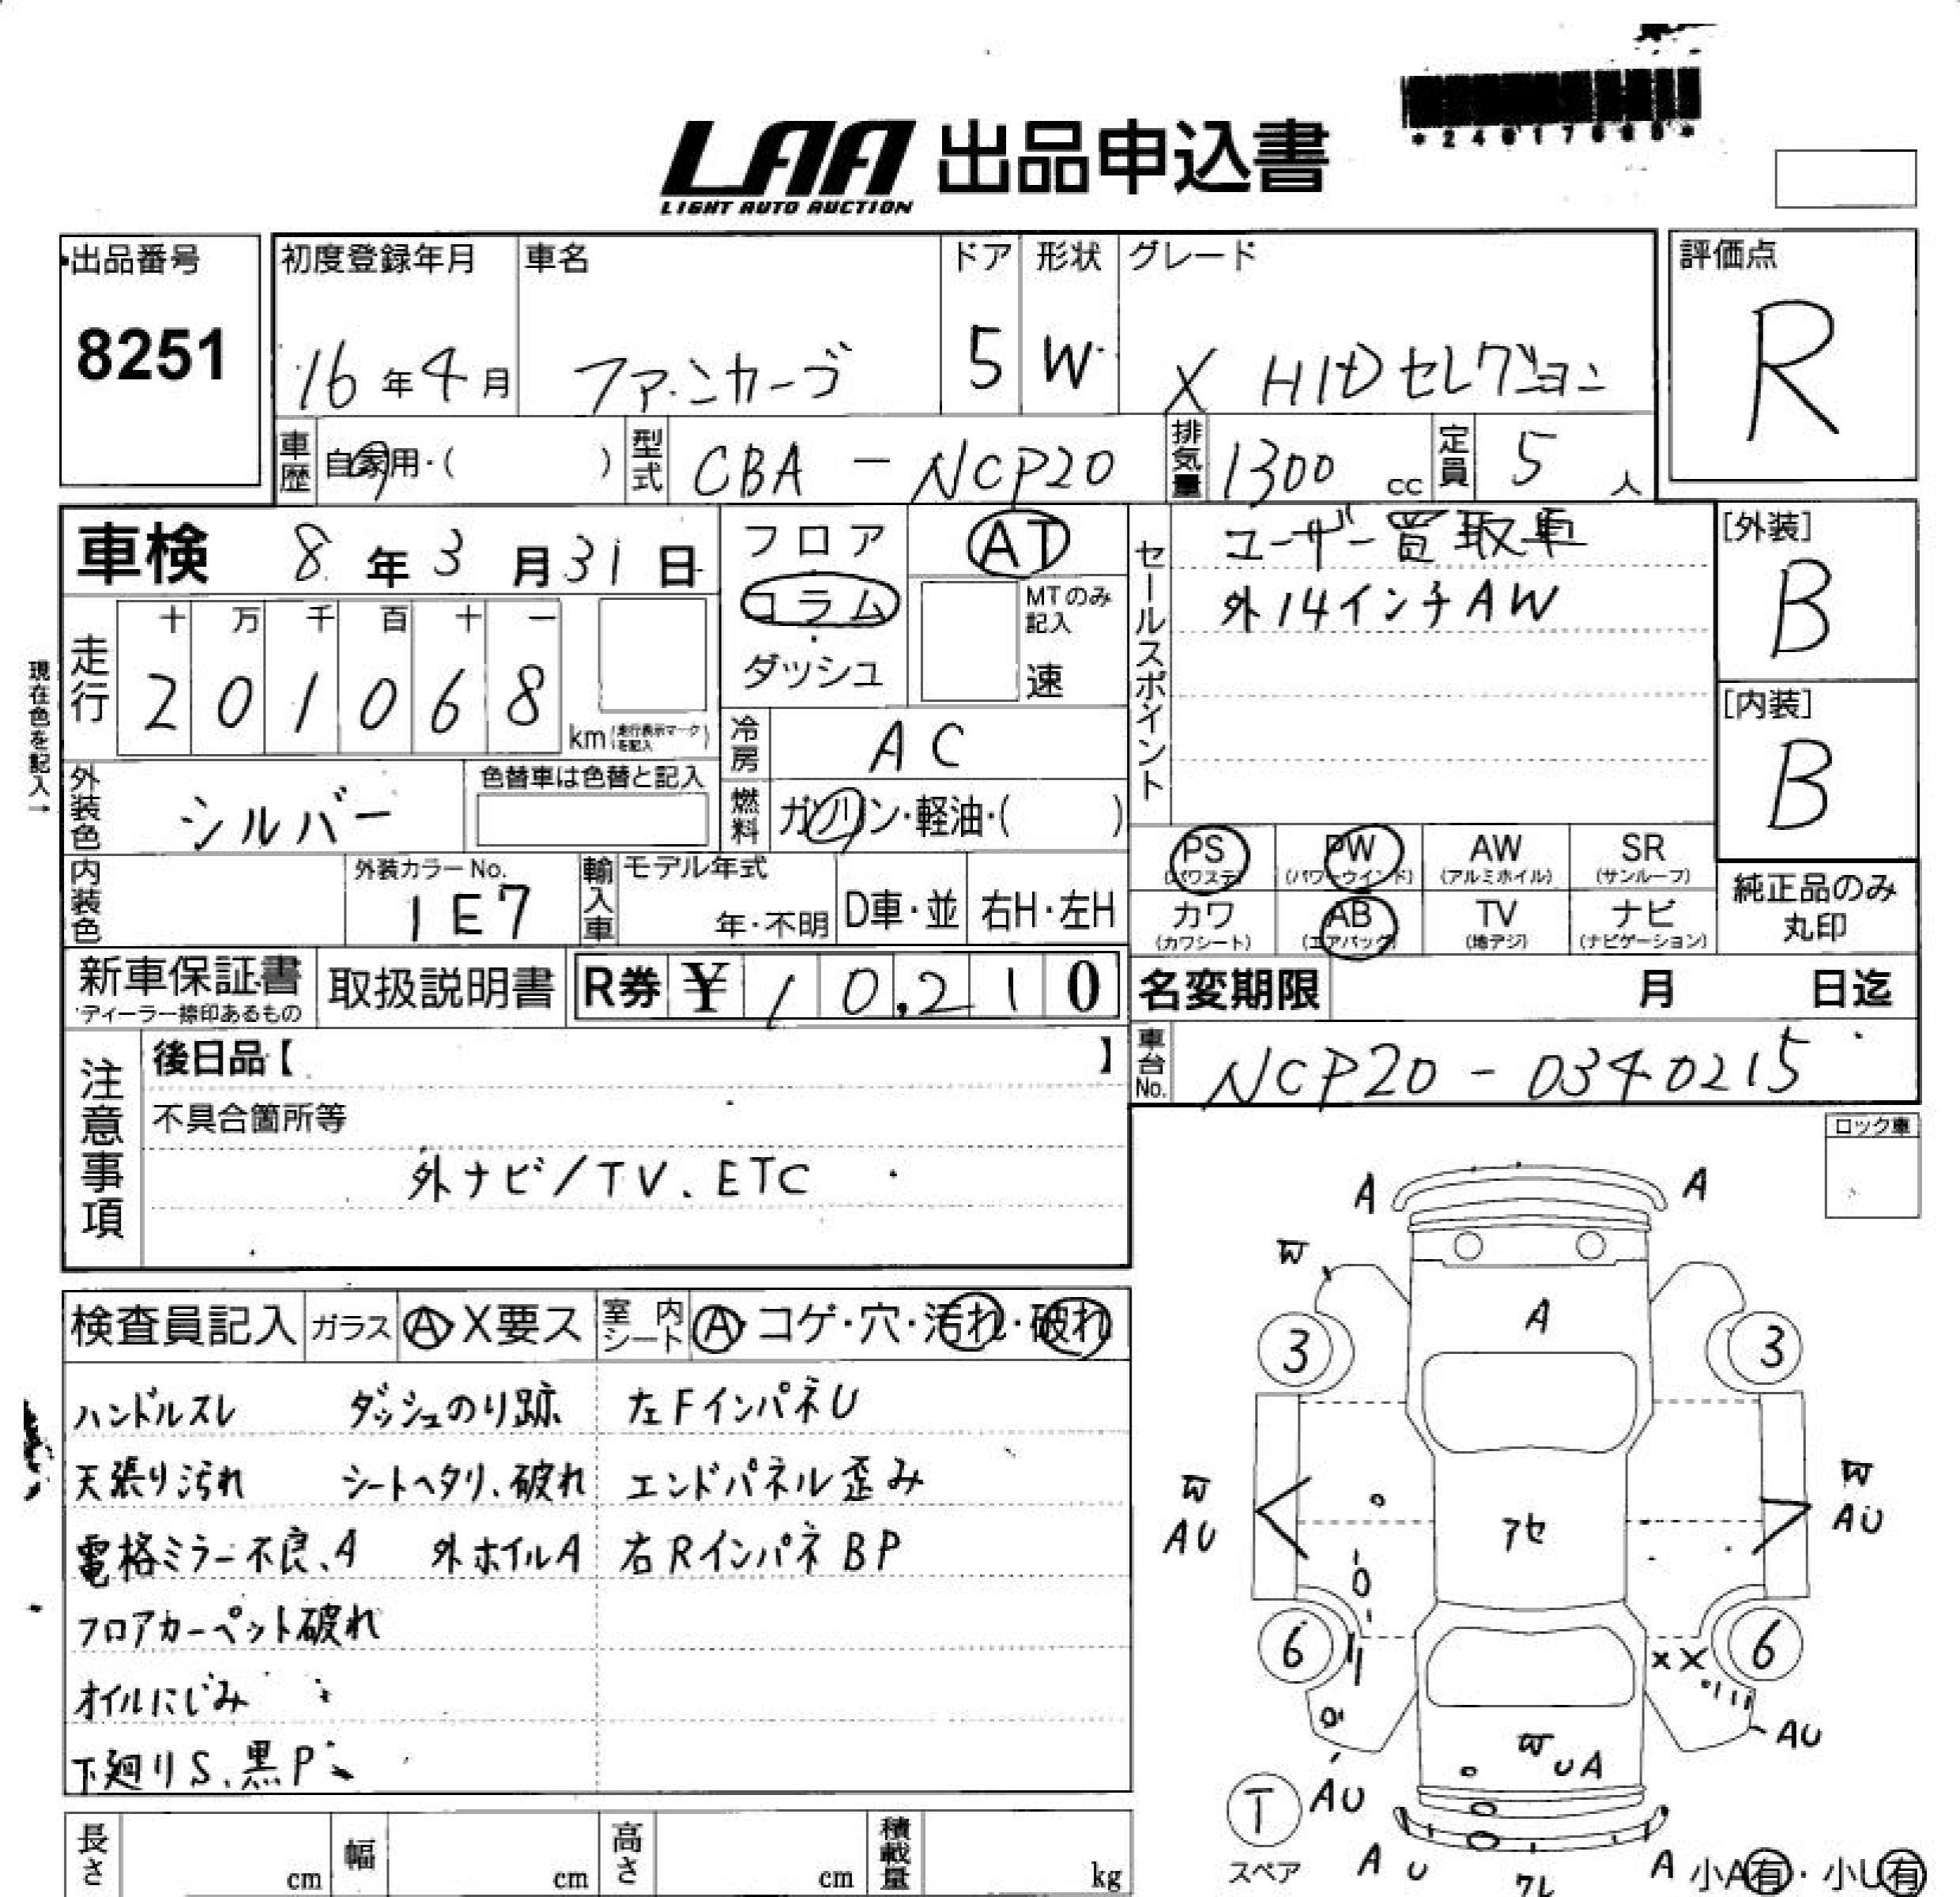 LAA 出品申込書
LIGHT AUTO AUCTION
出品番号
8251
初度登録年月
16年4月
車名
ファンカーゴ
ドア
5
形状
W
グレード
X HIDセレクション
評価点
R
車歴 自家用・( )
型式 CBA - NCP20
排気量 1300 cc
定員 5 人
車検 8年3月31日
フロア
コラム
ダッシュ
AT
MTのみ記入
速
セールスポイント
ユーザー買取車
外14インチAW
[外装]
B
[内装]
B
現在色を記入→
走行
十 万 千 百 十 一
2 0 1 0 6 8
km(走行表示マークを記入)
冷房 AC
外装色 シルバー
色替車は色替と記入
燃料 ガソリン・軽油・( )
PS (パワステ)
PW (パワーウインド)
AW (アルミホイル)
SR (サンルーフ)
カワ (カワシート)
AB (エアバック)
TV (地デジ)
ナビ (ナビゲーション)
純正品のみ丸印
内装色
外装カラーNo.
1E7
輸入車
モデル年式
年・不明
D車・並
右H・左H
新車保証書
ディーラー捺印あるもの
取扱説明書
R券 ¥ 10,210
名変期限 月 日迄
車台No. NCP20 - 0340215
注意事項
後日品【 】
不具合箇所等
外ナビ/TV、ETC
ロック車
検査員記入
ガラス A・X要ス
室内シート A・コゲ・穴・汚れ・破れ
ハンドルスレ ダッシュのり跡 左FインパネU
天張り汚れ シートヘタリ、破れ エンドパネル歪み
電格ミラー不良、A 外ホイルA 右RインパネBP
フロアカーペット破れ
オイルにじみ
下廻りS、黒P
A A
W
A
3 3
W W
AU AU
アセ
6 6
XX
AU
W UA
T
スペア
AU
A U A
小A有・小U有
長さ cm
幅 cm
高さ cm
積載量 kg